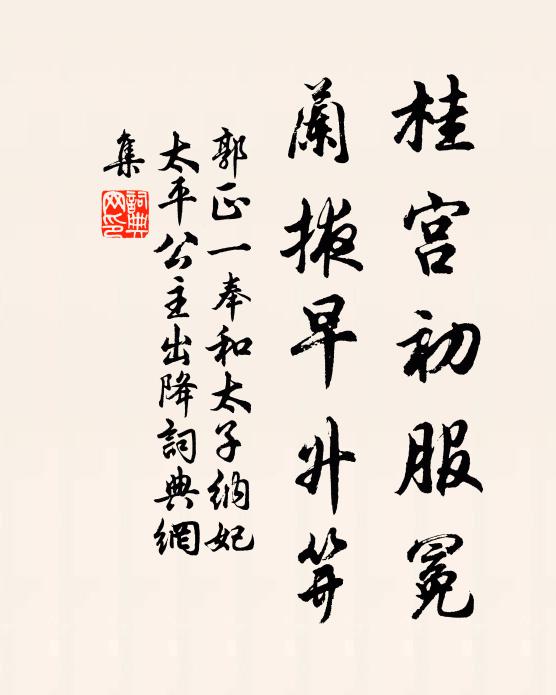 桂宮初服冕
蘭掖早升笄
郭正一奉和太子納妃
太平公主出降詞典網
集
詞典网印